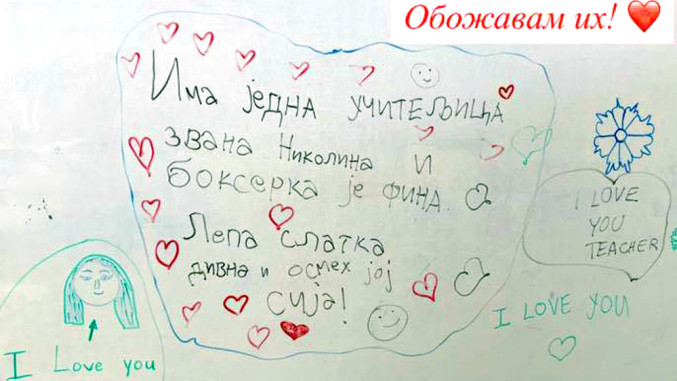 Обожавам их! ❤️
Има једна учитељица
звана Николина и
боксерка је фина.
Лепа слатка
дивна и осмех јој
сија!
I LOVE
YOU
TEACHER
I LOVE YOU
I Love you